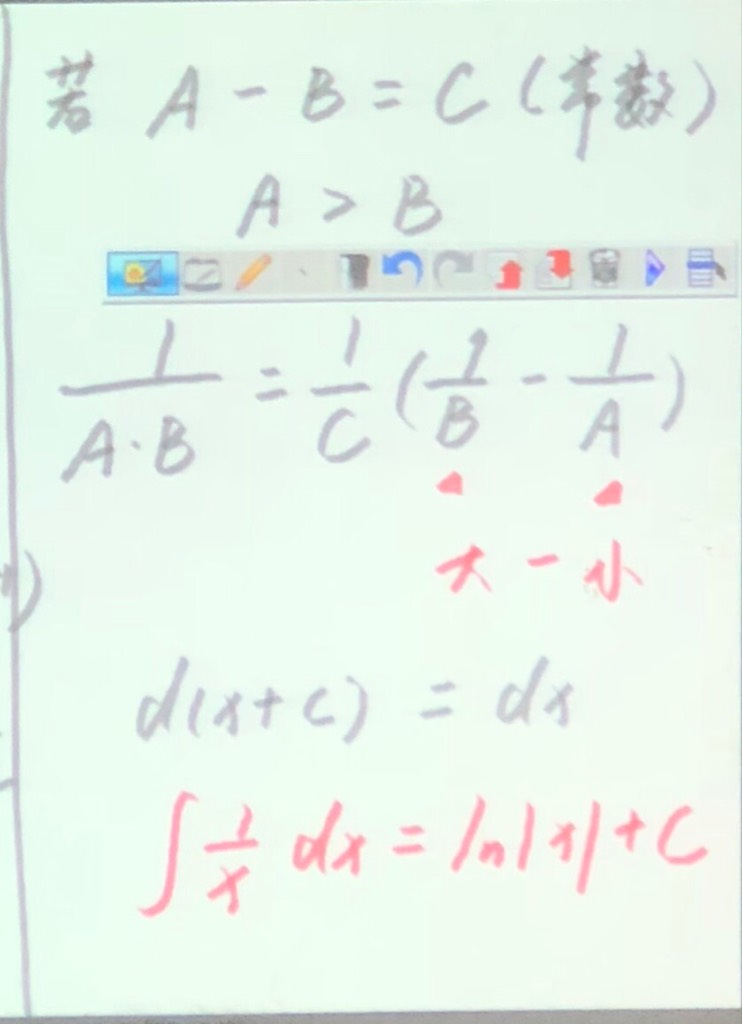 若 A - B = C (常数)
A > B
1/(A·B) = 1/C (1/B - 1/A)
大 - 小
d(x+c) = dx
∫ 1/x dx = ln|x| + C